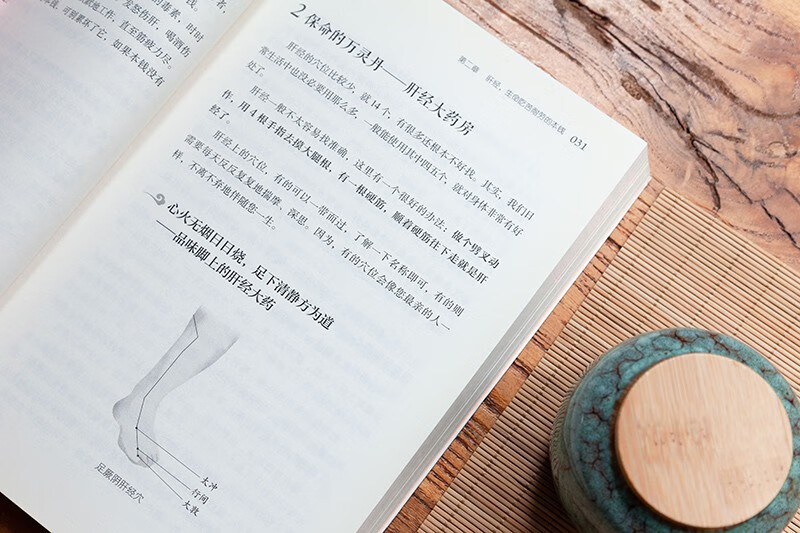 者,
钱。
的毒素,时时
发怒伤肝,喝酒伤
地工作,直至筋疲力尽。
钱,可别累坏了它,如果本钱没有
第二章 肝经,生命吃苦耐劳的本钱
031
2 保命的万灵丹——肝经大药房
肝经的穴位比较少,就14个,有很多还根本不好找。其实,我们日
常生活中也没必要用那么多,一般能使用其中四五个,就对身体非常有好
处了。
肝经一般不太容易找准确,这里有一个很好的办法:做个劈叉动
作,用4根手指去摸大腿根,有一根硬筋,顺着硬筋往下走就是肝
经了。
肝经上的穴位,有的可以一带而过,了解一下名称即可,有的则
需要每天反反复复地揣摩、深思。因为,有的穴位会像您最亲的人一
样,不离不弃地伴随您一生。
心火无烟日日烧,足下清静方为道
——品味脚上的肝经大药
太冲
行间
大敦
足厥阴肝经穴